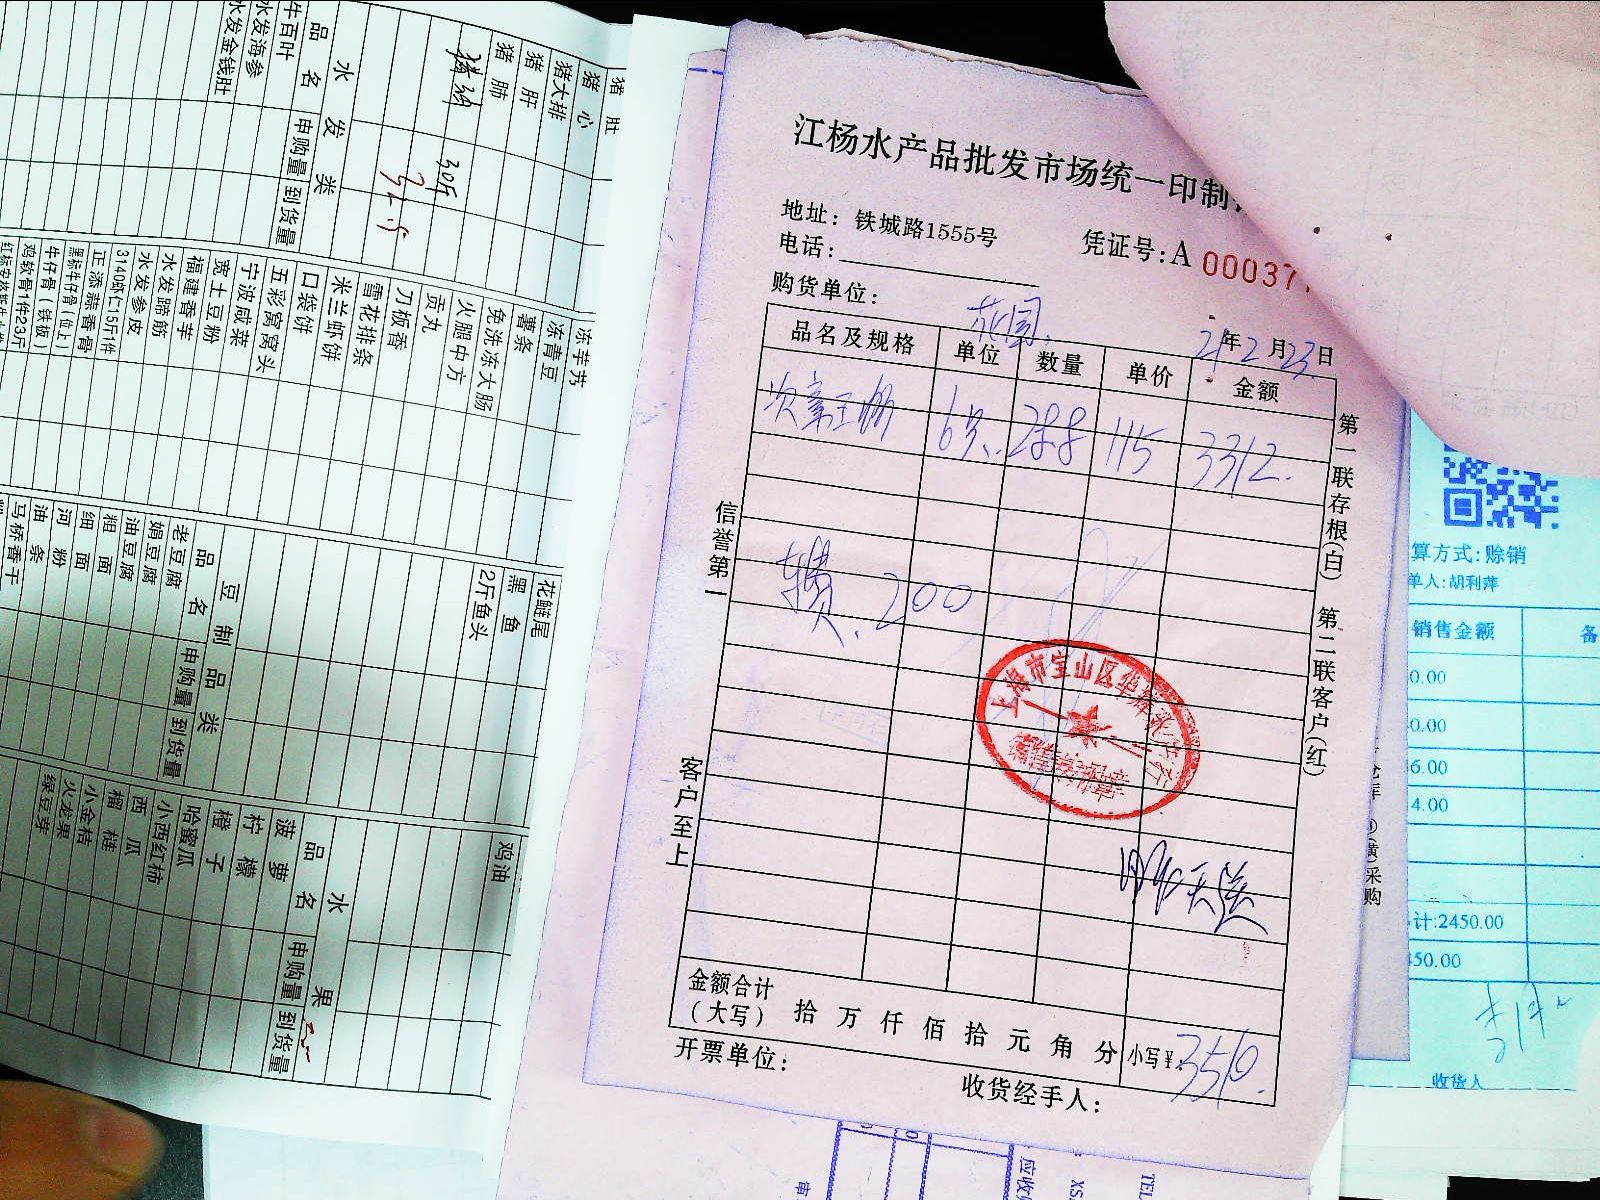 江杨水产品批发市场统一印制
地址: 铁城路1555号
凭证号: A 00037
电话:
购货单位: 花园
21年2月23日
品名及规格 单位 数量 单价 金额
6只 28.8 115 3312.
费. 200
信誉第一
客户至上
第一联存根(白) 第二联客户(红)
上海市宝山区
金额合计
(大写) 拾 万 仟 佰 拾 元 角 分 小写¥: 3510.
开票单位:
收货经手人:
猪肚
猪心
猪大排
猪肝
猪肺
30斤
水发类
品名 申购量 到货量
牛百叶
水发海参
水发金钱肚
冻芋艿
冻青豆
薯条
免洗冻大肠
火腿中方
贡丸
刀板香
雪花排条
米兰虾饼
口袋饼
五彩窝窝头
宁波咸菜
宽土豆粉
福建香芋
水发蹄筋
水发参皮
3140虾仁5斤1件
正添蒜香骨
黑标牛仔骨(位上)
牛仔骨(铁板)
鸡软骨1件23斤
花鲢尾
黑鱼
2斤鱼头
豆制品类
品名 申购量 到货量
老豆腐
娟豆腐
油豆腐
粗面
细面
河粉
油条
马桥香干
鸡油
水果
品名 申购量 到货量
菠萝
柠檬
橙子
哈蜜瓜
小西红柿
西瓜
榴梿
小金桔
火龙果
绿豆芽
算方式: 赊销
单人: 胡利萍
销售金额 备
0.00
0.00
6.00
4.00
计:2450.00
450.00
收货人
采购
应收
TEL